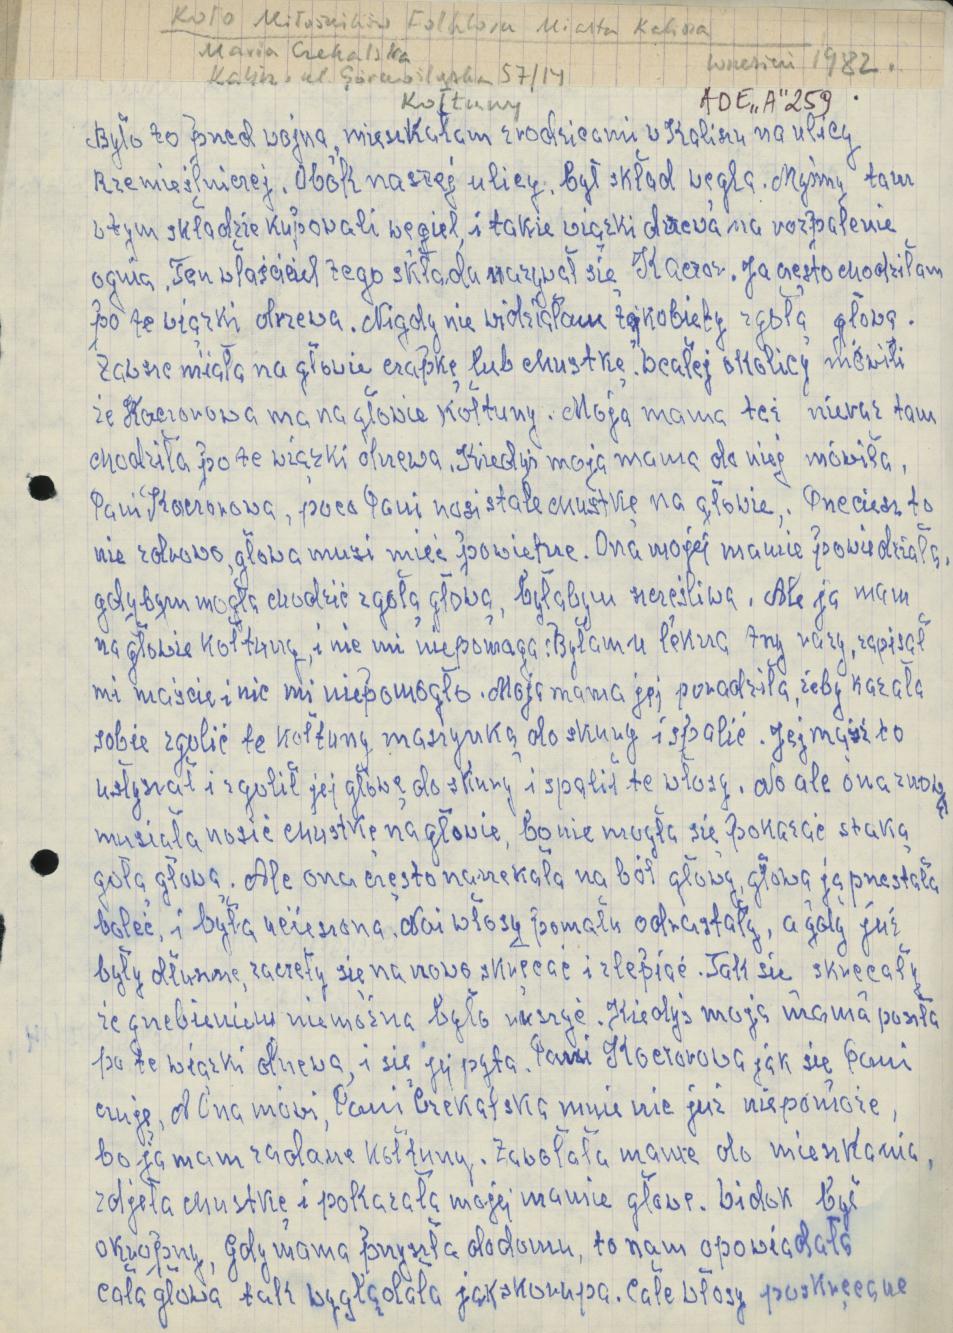 Koło Miłośników Folkloru Miasta Kalisza
Maria Czekalska
Kalisz. ul. Górnośląska 57/14 wrzesień 1982.
Kołtuny ADE„A"259
Było to przed wojną, mieszkałam zrodzicami w Kaliszu na ulicy
Rzemieślniczej. Obok naszej ulicy, był skład węgla. Myśmy tam
wtym składzie kupowali węgiel, i takie wiązki drzewa na rozpalenie
ognia. Ten właściciel tego składu nazywał się Kaczor. Ja często chodziłam
po te wiązki drzewa. Nigdy nie widziałam tej kobiety zgołą głową.
Zawsze miała na głowie czapkę lub chustkę. wcałej okolicy mówili
że Kaczorowa ma na głowie kołtuny. Moja mama też nieraz tam
chodziła po te wiązki drzewa. Kiedyś moja mama do niej mówiła,
Pani Kaczorowa, poco Pani nosi stale chustkę na głowie,. Przeciesz to
nie zdrowo, głowa musi mieć powietrze. Ona mojej mamie powiedziała,
gdybym mogła chodzić zgołą głową, byłabym szczęśliwa. Ale ja mam
na głowie kołtuny, i nic mi niepomaga. Byłam u lekarza trzy razy, zapisał
mi maście i nic mi niepomogło. Moja mama jej poradziła, żeby kazała
sobie zgolić te kołtuny maszynką do skury i spalić. Jej mąż to
usłyszał i zgolił jej głowę do skury i spalił te włosy. No ale ona znowu
musiała nosić chustkę na głowie, bo nie mogła się pokazać staką
gołą głową. Ale ona często narzekała na ból głowy, głowa ją przestała
boleć, i była ucieszona. Noi włosy pomału odrastały, a gdy już
były dłuższe, zaczęły się na nowo skręcać i zlepiać. Tak sie skręcały
że grzebieniem niemożna było ruszyć. Kiedyś moja mama poszła
po te wiązki drzewa, i się jej pyta. Pani Kaczorowa jak się Pani
czuje, A Ona mówi, Pani Czekalska mnie nic już niepomoże,
bo ja mam zadane kołtuny. Zawołała mamę do mieszkania,
zdjęła chustkę i pokazała mojej mamie głowę. Widok był
okropny, Gdy mama przyszła dodomu, to nam opowiadała
cała głowa tak wyglądała jak skorupa. Całe włosy poskręcane